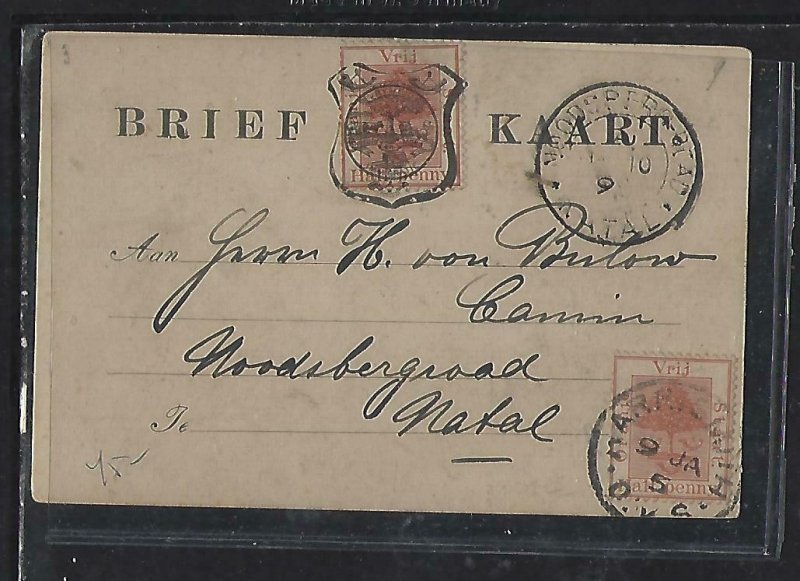 Vrij
BRIEF KAART
Half Penny
NATAL
10
Aan Herrn H. von Bülow
Camin
Noodsbergroad
Te Natal
15-
Vrij
HARRISMITH
9 JA
5
Half penny